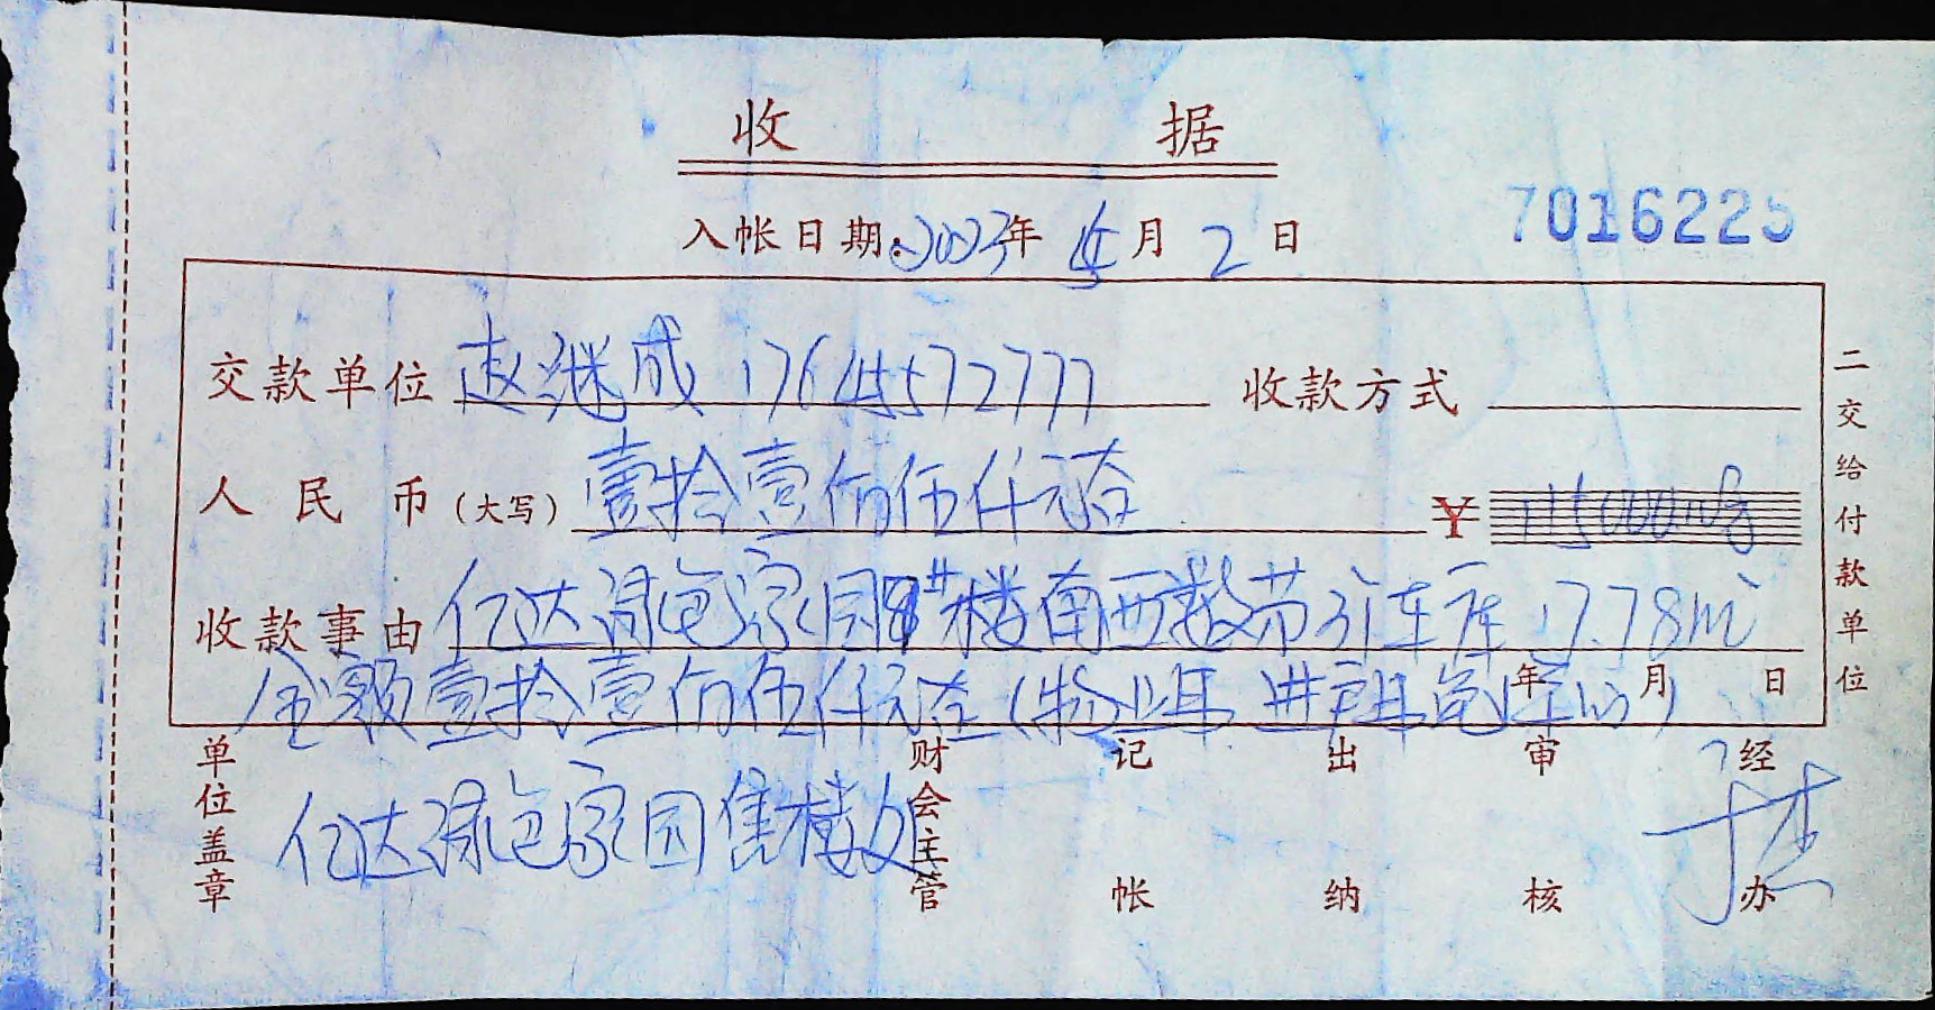 收据
7016225
入帐日期:2023年 4月 2日
交款单位 赵继成 17645572777 收款方式
人民币(大写) 壹拾壹佰伍仟元整 ¥ 115000元
收款事由 亿达绿色家园8#楼南西数第31车库 17.78m²
金额壹拾壹佰伍仟元整(物业 进户
年 月 日
二交给付款单位
单位盖章 亿达绿色家园售楼处 财会主管 记帐 出纳 审核 经办 于杰